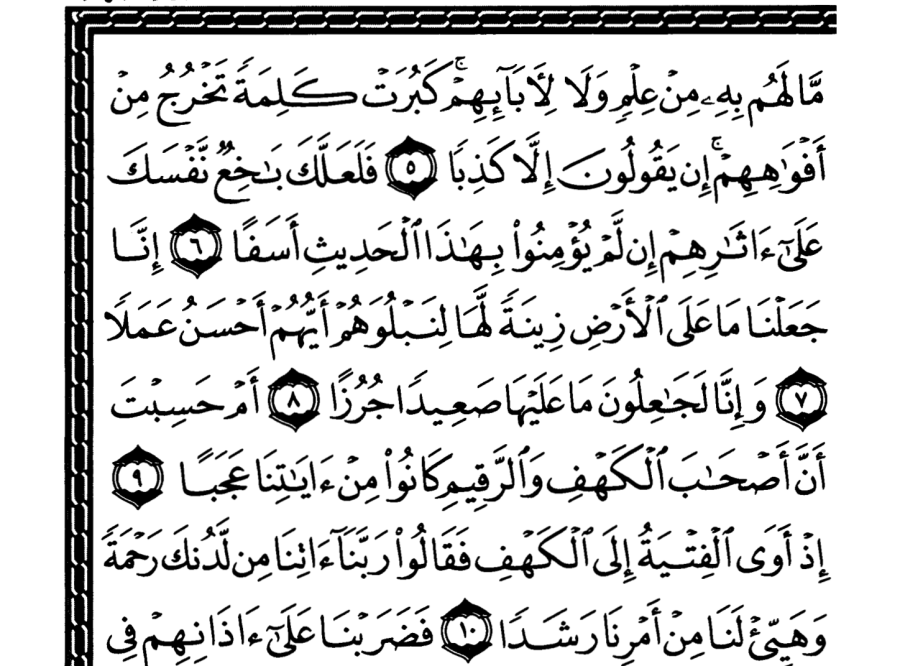 مَّا لَهُم بِهِۦ مِنْ عِلْمٍ وَلَا لِأَبَآئِهِمْ ۚ كَبُرَتْ كَلِمَةً تَخْرُجُ مِنْ
أَفْوَٰهِهِمْ ۚ إِن يَقُولُونَ إِلَّا كَذِبًا ٥ فَلَعَلَّكَ بَـٰخِعٌ نَّفْسَكَ
عَلَىٰٓ ءَاثَـٰرِهِمْ إِن لَّمْ يُؤْمِنُوا۟ بِهَـٰذَا ٱلْحَدِيثِ أَسَفًا ٦ إِنَّا
جَعَلْنَا مَا عَلَى ٱلْأَرْضِ زِينَةً لَّهَا لِنَبْلُوَهُمْ أَيُّهُمْ أَحْسَنُ عَمَلًا
٧ وَإِنَّا لَجَـٰعِلُونَ مَا عَلَيْهَا صَعِيدًا جُرُزًا ٨ أَمْ حَسِبْتَ
أَنَّ أَصْحَـٰبَ ٱلْكَهْفِ وَٱلرَّقِيمِ كَانُوا۟ مِنْ ءَايَـٰتِنَا عَجَبًا ٩
إِذْ أَوَى ٱلْفِتْيَةُ إِلَى ٱلْكَهْفِ فَقَالُوا۟ رَبَّنَآ ءَاتِنَا مِن لَّدُنكَ رَحْمَةً
وَهَيِّئْ لَنَا مِنْ أَمْرِنَا رَشَدًا ١٠ فَضَرَبْنَا عَلَىٰٓ ءَاذَانِهِمْ فِى